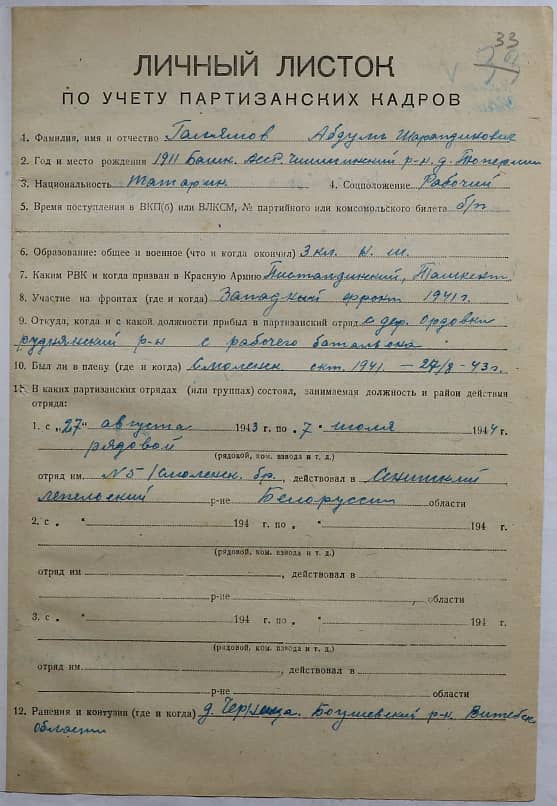 33
ЛИЧНЫЙ ЛИСТОК
ПО УЧЕТУ ПАРТИЗАНСКИХ КАДРОВ
1. Фамилия, имя и отчество Галямов Абдулъ
2. Год и место рождения 1911 Башк. АССР. Чишминский р-н. д.
3. Национальность Татарин. 4. Соцположение Рабочий
5. Время поступления в ВКП(б) или ВЛКСМ, № партийного или комсомольского билета б/п
6. Образование: общее и военное (что и когда окончил) 3 кл. н. ш.
7. Каким РВК и когда призван в Красную Армию Ташкент
8. Участие на фронтах (где и когда) Западный фронт 1941 г.
9. Откуда, когда и с какой должности прибыл в партизанский отряд с дер. Ордовки
руднянский р-н с рабочего батальона
10. Был ли в плену (где и когда) Смоленск. окт. 1941. — 27/8-43 г.
11. В каких партизанских отрядах (или группах) состоял, занимаемая должность и район действия
отряда:
1. с „27" августа 1943 г. по „7" июля 1944 г.
рядовой
(рядовой, ком. взвода и т. д.)
отряд им. №5 /Смоленск. бр., действовал в Сенитский
лепельский р-не Белоруссии области
2. с „ " 194 г. по „ " 194 г.
(рядовой, ком. взвода и т. д.)
отряд им , действовал в
р-не , области
3. с „ " 194 г. по „ " 194 г.
(рядовой, ком. взвода и т. д.)
отряд им. , действовал в
р-не области
12. Ранения и контузии (где и когда) д. Черница. Богушевский р-н. Витебск
области